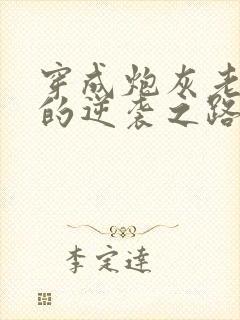 穿成炮灰老
的逆袭之路
李定达